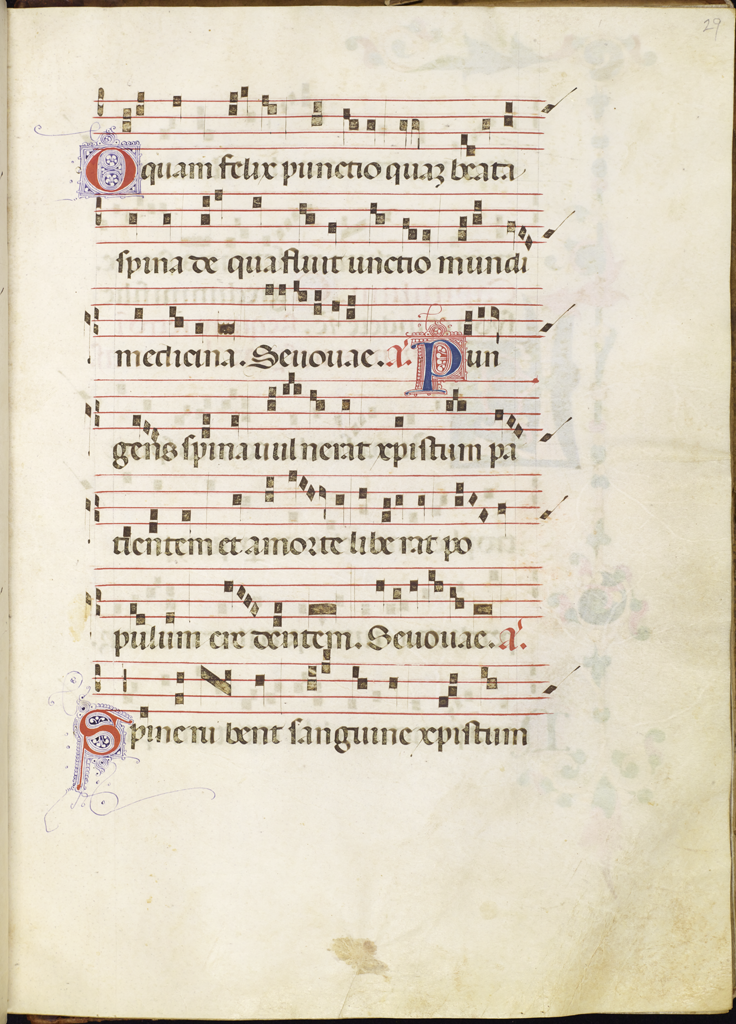 29
O quam felix punctio quaꝫ beata
spina de qua fluit unctio mundi
medicina. Seuouae. A. Pun
gens spina uulnerat xpistum pa
tientem et amorte liberat po
pulum credentem. Seuouae. A.
Spine rubent sanguine xpistum